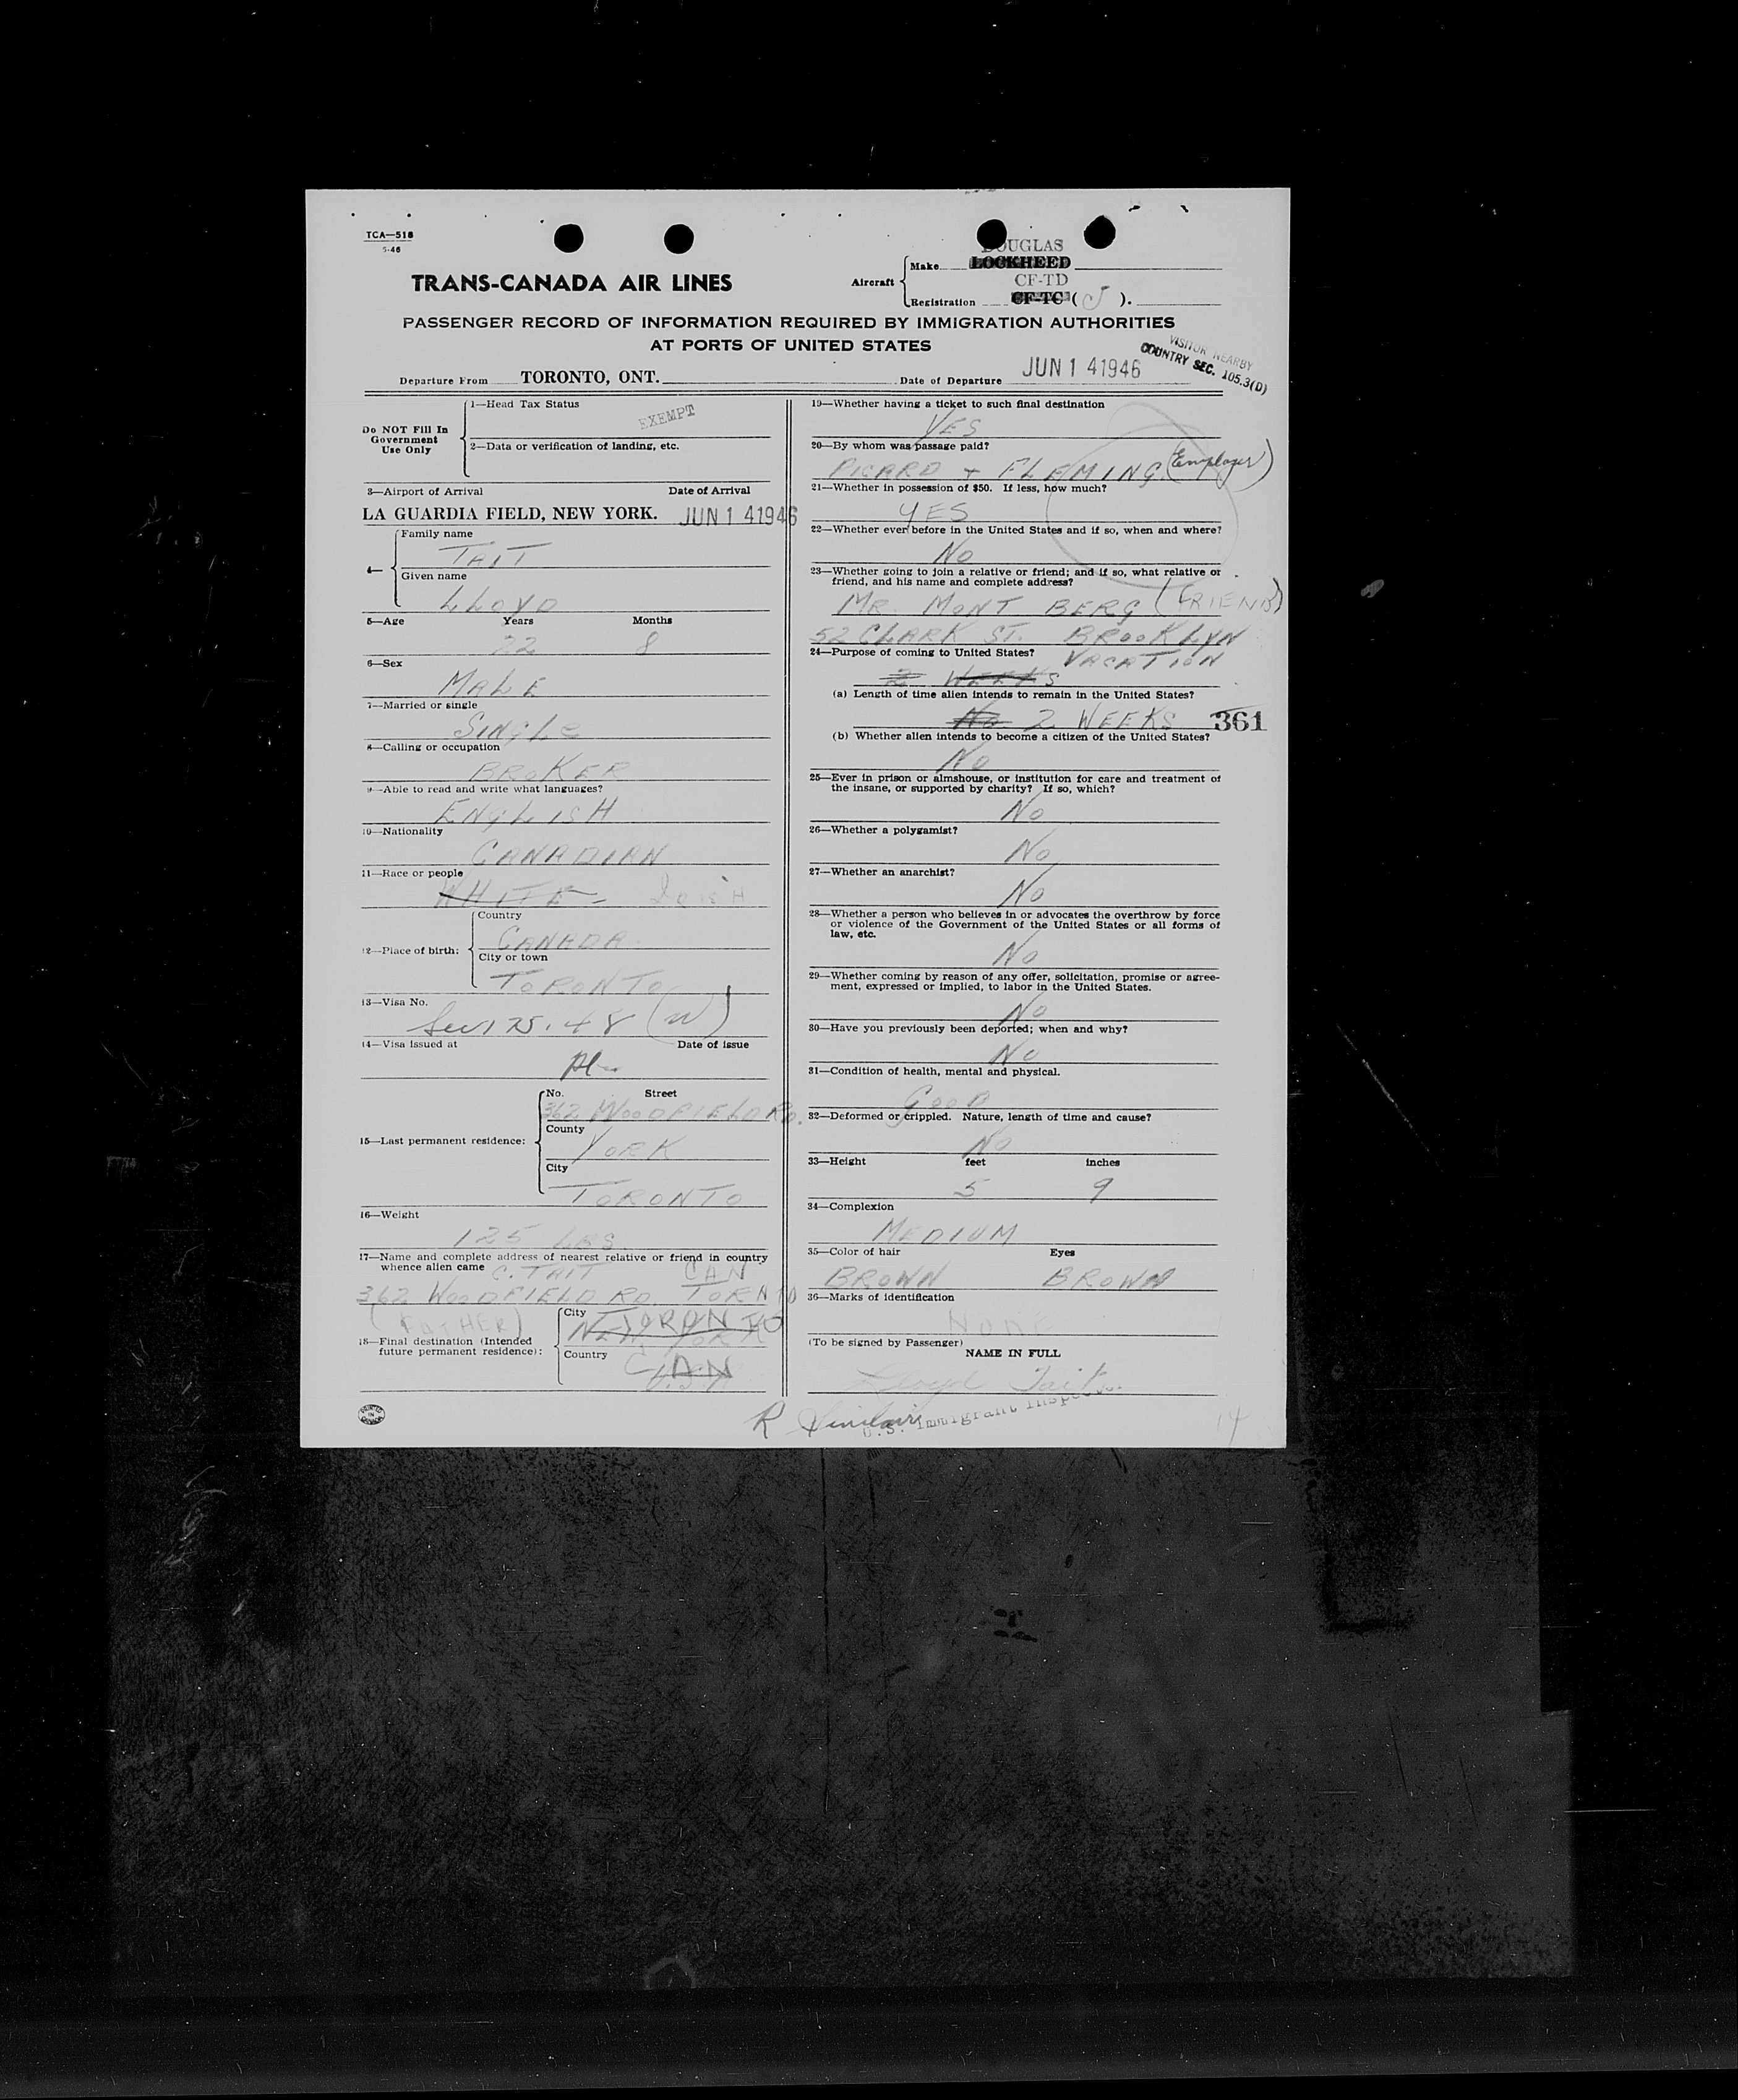 TCA—518
5-46
DOUGLAS
Make LOCKHEED
TRANS-CANADA AIR LINES
Aircraft
CF-TD
Registration CF-TC ( J ).
PASSENGER RECORD OF INFORMATION REQUIRED BY IMMIGRATION AUTHORITIES
AT PORTS OF UNITED STATES
VISITOR NEARBY
COUNTRY SEC. 105.3(D)
Departure From TORONTO, ONT. Date of Departure JUN 14 1946
Do NOT Fill In
Government
Use Only
1—Head Tax Status
EXEMPT
2—Data or verification of landing, etc.
3—Airport of Arrival Date of Arrival
LA GUARDIA FIELD, NEW YORK. JUN 14 1946
4—
Family name
TAIT
Given name
LLOYD
5—Age Years Months
22 8
6—Sex
MALE
7—Married or single
SINGLE
8—Calling or occupation
BROKER
9—Able to read and write what languages?
ENGLISH
10—Nationality
CANADIAN
11—Race or people
WHITE
12—Place of birth:
Country
CANADA
City or town
TORONTO
13—Visa No.
Sec 175.48 (w)
14—Visa issued at Date of issue
15—Last permanent residence:
No. Street
362 WOODFIELD RD.
County
YORK
City
TORONTO
16—Weight
125 LBS
17—Name and complete address of nearest relative or friend in country
whence alien came C. TAIT CAN
362 WOODFIELD RD TORNTO
(FATHER)
18—Final destination (Intended
future permanent residence):
City
TORONTO
NEW YORK
Country
CAN
U.S.A
19—Whether having a ticket to such final destination
YES
20—By whom was passage paid?
PICARD + FLEMING (Employer)
21—Whether in possession of $50. If less, how much?
YES
22—Whether ever before in the United States and if so, when and where?
NO
23—Whether going to join a relative or friend; and if so, what relative or
friend, and his name and complete address?
MR. MONT BERG (FRIEND)
52 CLARK ST. BROOKLYN
24—Purpose of coming to United States? VACATION
2 WEEKS
(a) Length of time alien intends to remain in the United States?
No 2 WEEKS 361
(b) Whether alien intends to become a citizen of the United States?
NO
25—Ever in prison or almshouse, or institution for care and treatment of
the insane, or supported by charity? If so, which?
NO
26—Whether a polygamist?
NO
27—Whether an anarchist?
NO
28—Whether a person who believes in or advocates the overthrow by force
or violence of the Government of the United States or all forms of
law, etc.
NO
29—Whether coming by reason of any offer, solicitation, promise or agree-
ment, expressed or implied, to labor in the United States.
NO
30—Have you previously been deported; when and why?
NO
31—Condition of health, mental and physical.
GOOD
32—Deformed or crippled. Nature, length of time and cause?
NO
33—Height feet inches
5 9
34—Complexion
MEDIUM
35—Color of hair Eyes
BROWN BROWN
36—Marks of identification
NONE
(To be signed by Passenger)
NAME IN FULL
Lloyd Tait.
PRINTED IN CANADA
R Sinclair
U.S. Immigrant Inspector.
14